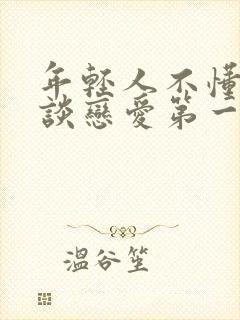 年輕人不懂
談戀愛第一
溫谷笙